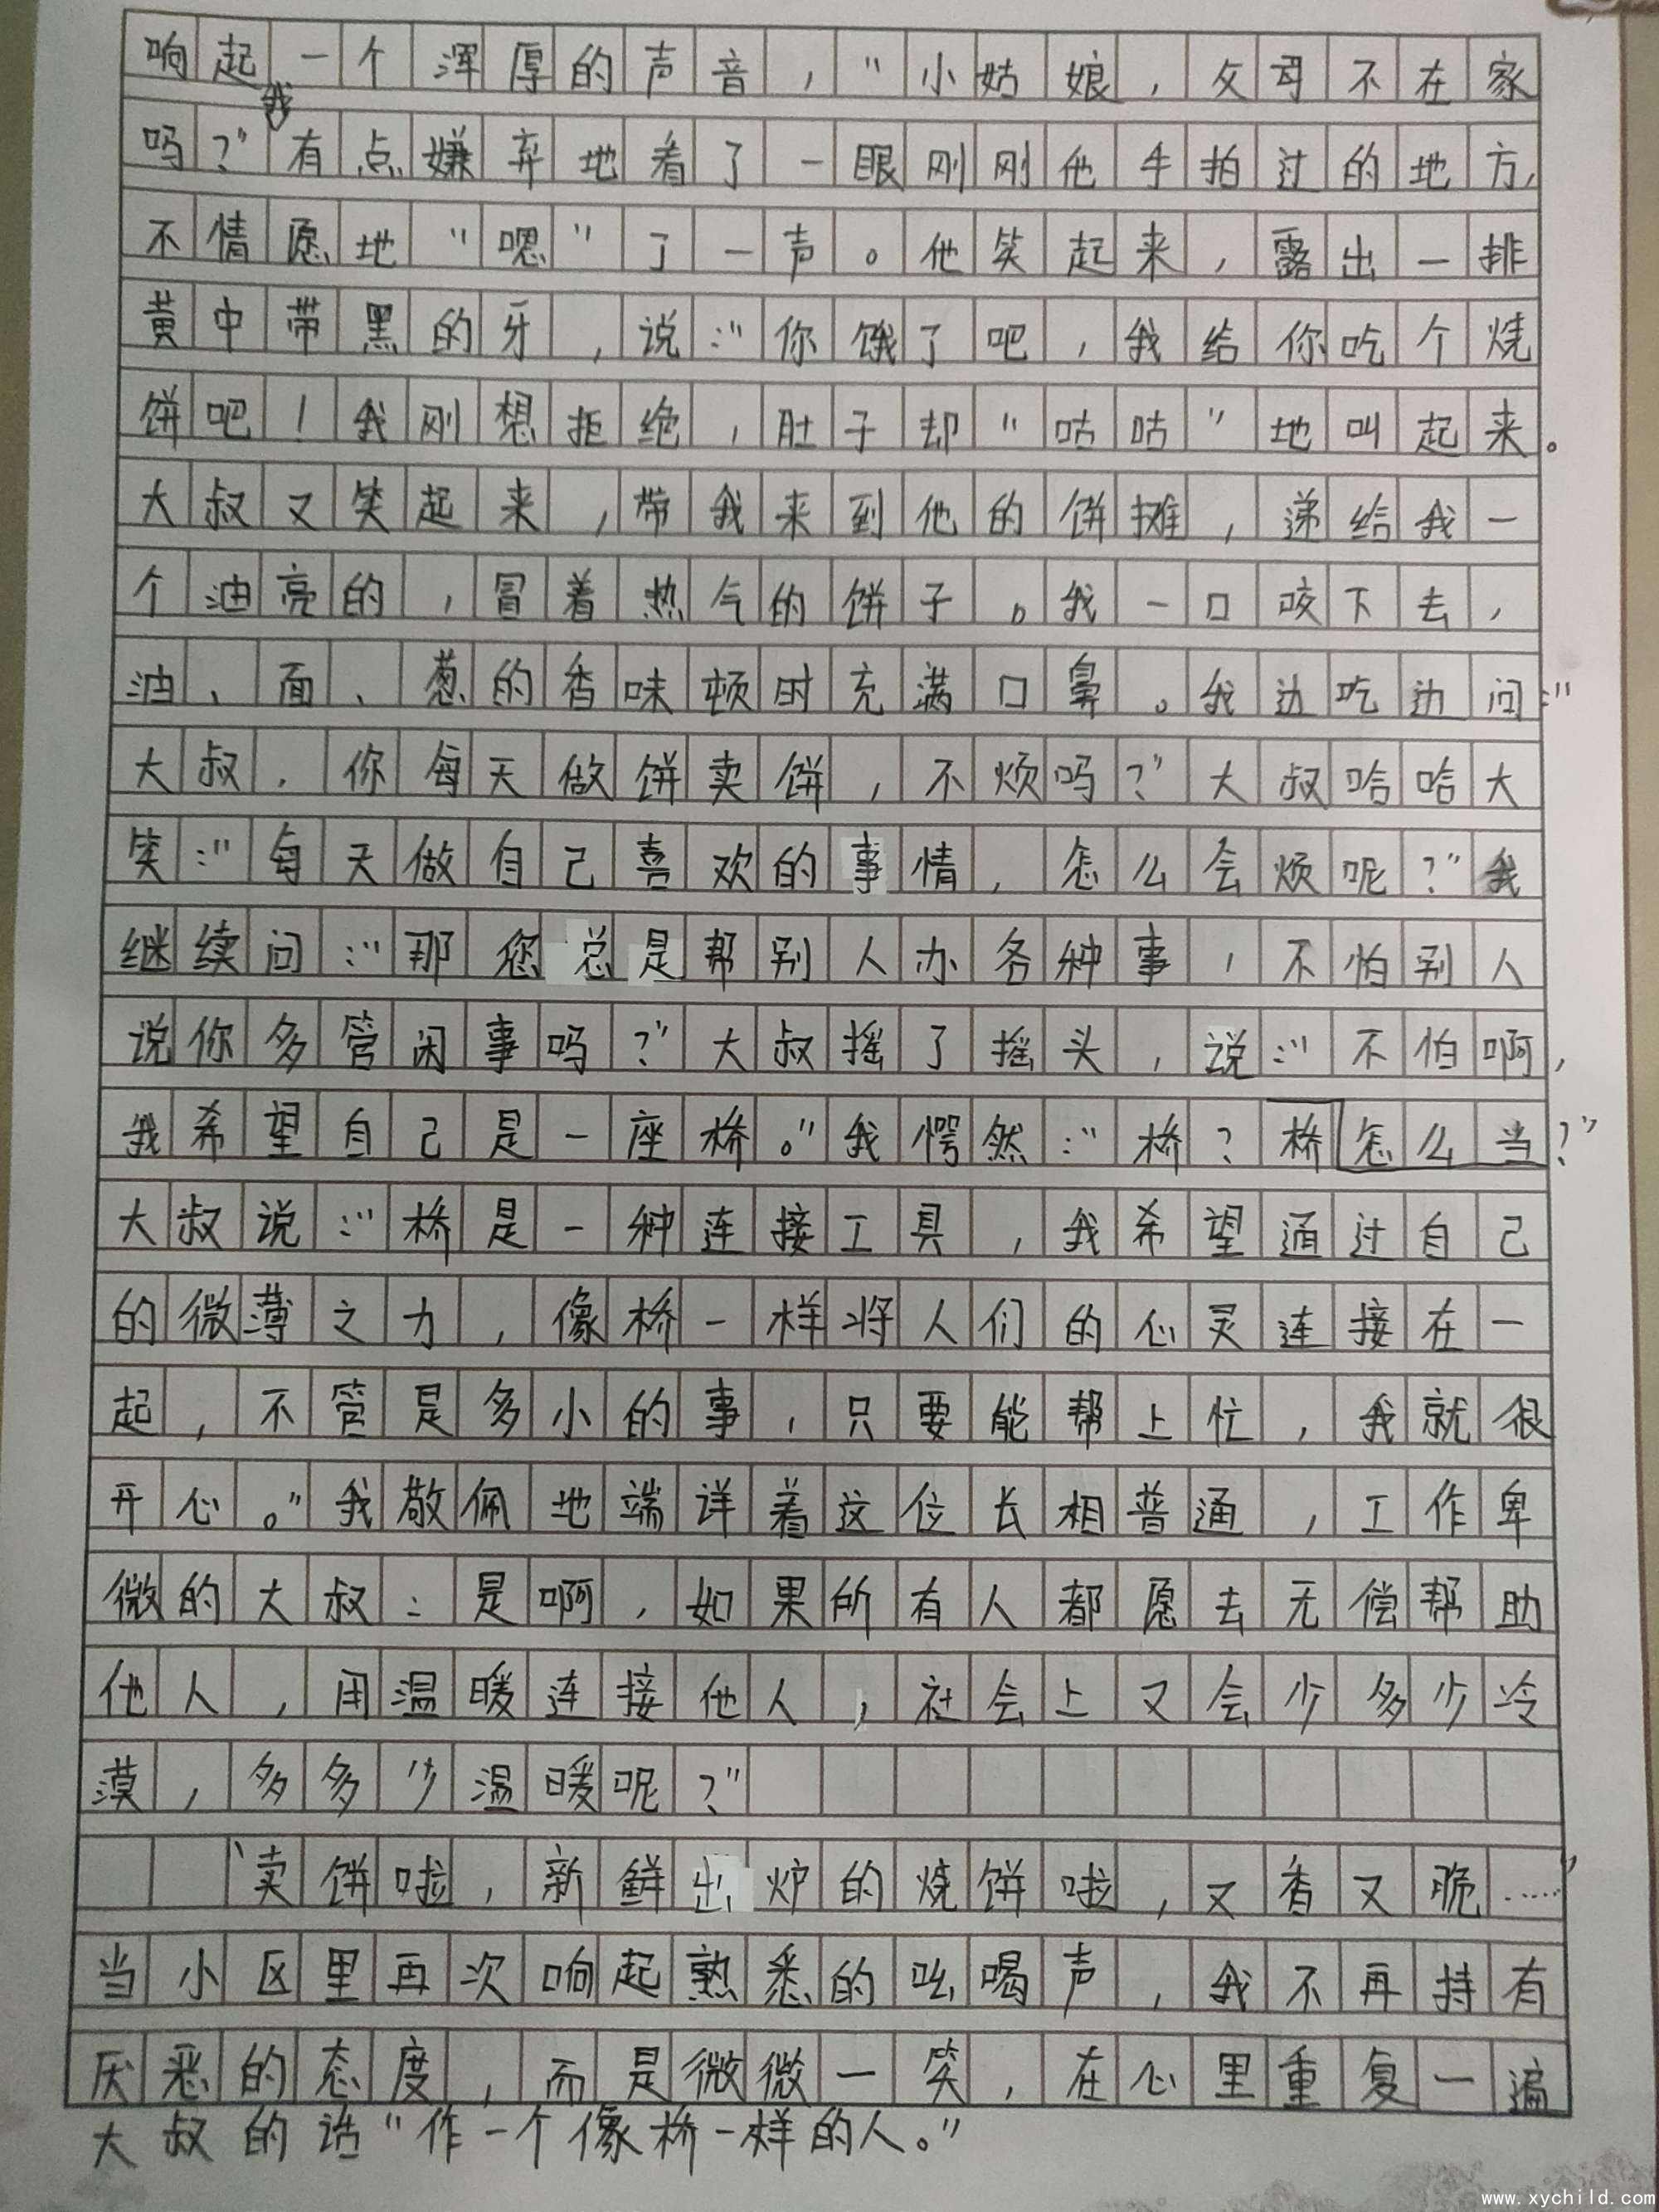 响起一个浑厚的声音，“小姑娘，父母不在家
吗？”我有点嫌弃地看了一眼刚刚他手拍过的地方，
不情愿地“嗯”了一声。他笑起来，露出一排
黄中带黑的牙，说：“你饿了吧，我给你吃个烧
饼吧！我刚想拒绝，肚子却“咕咕”地叫起来。
大叔又笑起来，带我来到他的饼摊，递给我一
个油亮的，冒着热气的饼子。我一口咬下去，
油、面、葱的香味顿时充满口鼻。我边吃边问：“
大叔，你每天做饼卖饼，不烦吗？”大叔哈哈大
笑：“每天做自己喜欢的事情，怎么会烦呢？”我
继续问：“那您总是帮别人办各种事，不怕别人
说你多管闲事吗？”大叔摇了摇头，说：“不怕啊，
我希望自己是一座桥。”我愕然：“桥？桥怎么当？”
大叔说：“桥是一种连接工具，我希望通过自己
的微薄之力，像桥一样将人们的心灵连接在一
起，不管是多小的事，只要能帮上忙，我就很
开心。”我敬佩地端详着这位长相普通，工作卑
微的大叔：是啊，如果所有人都愿去无偿帮助
他人，用温暖连接他人，社会上又会少多少冷
漠，多多少温暖呢？”
“卖饼啦，新鲜出炉的烧饼啦，又香又脆……”
当小区里再次响起熟悉的吆喝声，我不再持有
厌恶的态度，而是微微一笑，在心里重复一遍
大叔的话“作一个像桥一样的人。”
www.xychild.com